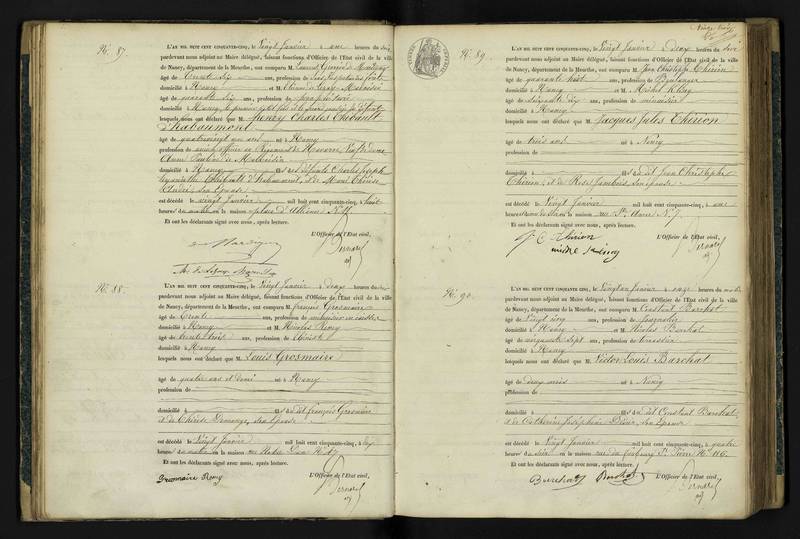 No. 87.
L'AN MIL HUIT CENT CINQUANTE-CINQ, le Vingt Janvier à une heures du soir
pardevant nous adjoint au Maire délégué, faisant fonctions d'Officier de l'Etat civil de la ville
de Nancy, département de la Meurthe, ont comparu M.
âgé de trente six ans, profession de
domicilié à Nancy et M.
âgé de quarante six ans, profession de propriétaire
domicilié à Nancy,
lesquels nous ont déclaré que M. Henry Charles Thibault
d'Habaumont
âgé de quatrevingt un ans né à Nancy
profession de ancien officier au Régiment de
Anne Pauline de
domicilié à Nancy fils de défunts Charles Joseph
Thibault d'Habaumont, et de Marie Thérèse
son épouse
est décédé le vingt Janvier mil huit cent cinquante-cinq, à huit
heures du matin en la maison place d'Alliance No
Et ont les déclarants signé avec nous, après lecture.
L'Officier de l'Etat civil,
No. 88.
L'AN MIL HUIT CENT CINQUANTE-CINQ, le Vingt Janvier à deux heures du soir
pardevant nous adjoint au Maire délégué, faisant fonctions d'Officier de l'Etat civil de la ville
de Nancy, département de la Meurthe, ont comparu M. François Grosmaire
âgé de trente ans, profession de menuisier en
domicilié à Nancy et M. Nicolas Remy
âgé de trente trois ans, profession de ébéniste
domicilié à Nancy
lesquels nous ont déclaré que M. Louis Grosmaire
âgé de quatre ans et demi né à Nancy
profession de
domicilié à fils de dit François Grosmaire
et de Thérèse Demange, son épouse
est décédé le Vingt Janvier mil huit cent cinquante-cinq, à
heures du matin en la maison rue
Et ont les déclarants signé avec nous, après lecture.
L'Officier de l'Etat civil,
Grosmaire Remy
No. 89.
L'AN MIL HUIT CENT CINQUANTE-CINQ, le Vingt Janvier à deux heures du soir
pardevant nous adjoint au Maire délégué, faisant fonctions d'Officier de l'Etat civil de la ville
de Nancy, département de la Meurthe, ont comparu M. Jean Christophe Thirion
âgé de quarante huit ans, profession de Boulanger
domicilié à Nancy et M. Michel
âgé de soixante dix ans, profession de
domicilié à Nancy
lesquels nous ont déclaré que M. Jacques Jules Thirion
âgé de trois ans né à Nancy
profession de
domicilié à fils de dit Jean Christophe
Thirion, et de Rose Jambois, son épouse
est décédé le Vingt Janvier mil huit cent cinquante-cinq, à une
heures en la maison rue St. No 7.
Et ont les déclarants signé avec nous, après lecture.
L'Officier de l'Etat civil,
J. C. Thirion
No. 90.
L'AN MIL HUIT CENT CINQUANTE-CINQ, le Vingt un Janvier à onze heures du matin
pardevant nous adjoint au Maire délégué, faisant fonctions d'Officier de l'Etat civil de la ville
de Nancy, département de la Meurthe, ont comparu M. Constant Barchat
âgé de Vingt cinq ans, profession de
domicilié à Nancy et M. Nicolas Barchat
âgé de cinquante sept ans, profession de
domicilié à Nancy
lesquels nous ont déclaré que M. Victor Louis Barchat
âgé de deux mois né à Nancy
profession de
domicilié à fils de dit Constant Barchat,
et de Catherine Joséphine son épouse
est décédé le Vingt Janvier mil huit cent cinquante-cinq, à quatre
heures du soir en la maison rue du faubourg St. Pierre No 116.
Et ont les déclarants signé avec nous, après lecture.
L'Officier de l'Etat civil,
Barchat Barchat